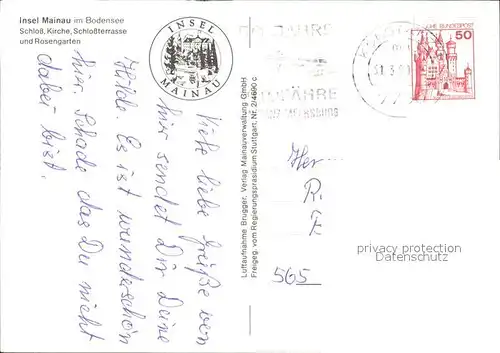 Insel Mainau im Bodensee
Schloß, Kirche, Schloßterrasse
und Rosengarten
INSEL
MAINAU
Viele liebe Grüße von
hier sendet Dir Deine
Hilde. Es ist wunderschön
hier. Schade das Du nicht
dabei bist.
Luftaufnahme Brugger, Verlag Mainauverwaltung GmbH
Freigeg. vom Regierungspräsidium Stuttgart, Nr. 2/4690 c
JAHRE
FÄHRE
MEERSBURG
BUNDESPOST
50
Herr
R.
F
565
privacy protection
Datenschutz